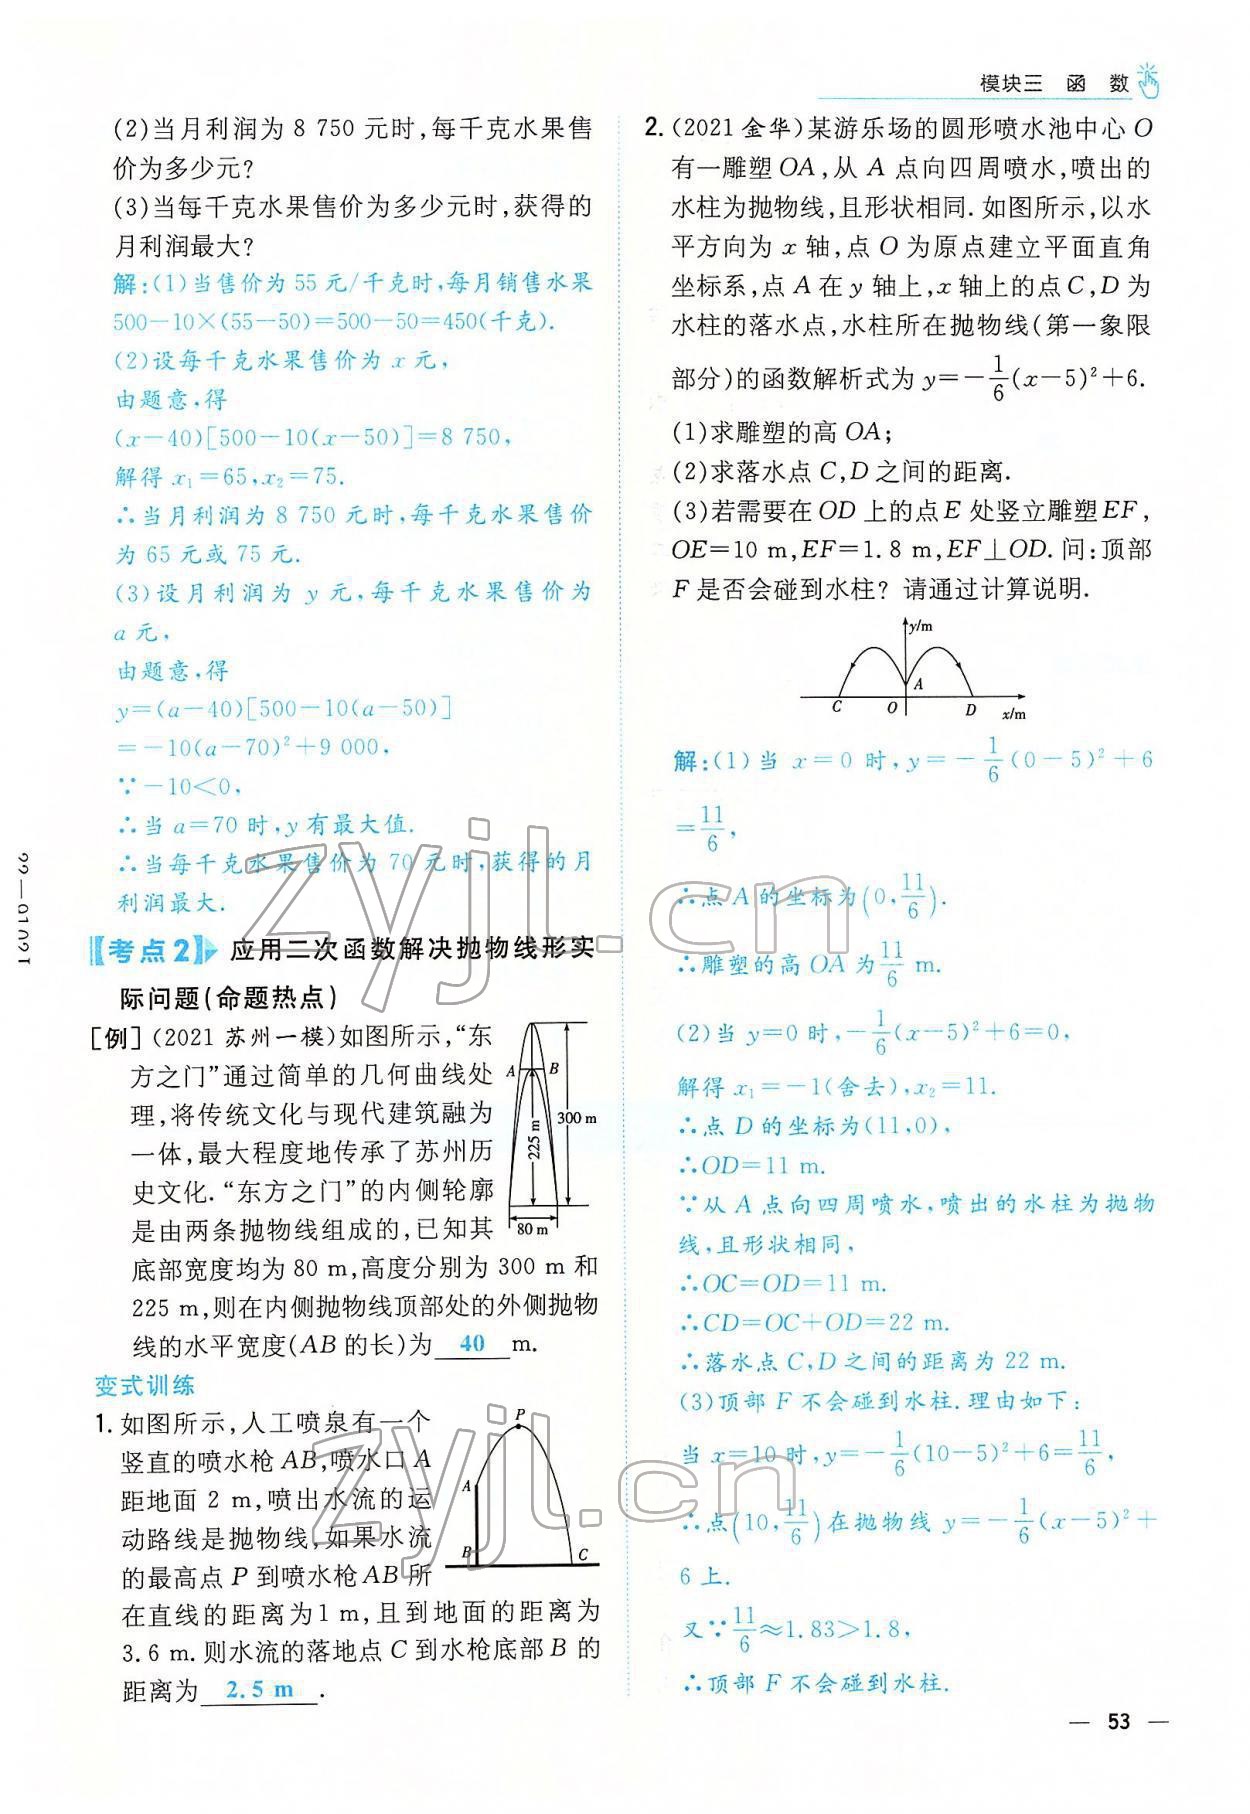 模块三 函 数
(2)当月利润为 8 750 元时,每千克水果售
价为多少元?
(3)当每千克水果售价为多少元时,获得的
月利润最大?
解:(1)当售价为 55 元/千克时,每月销售水果
500-10×(55-50)=500-50=450(千克).
(2)设每千克水果售价为 x 元,
由题意,得
(x-40)[500-10(x-50)]=8 750,
解得 x₁=65,x₂=75.
∴当月利润为 8 750 元时,每千克水果售价
为 65 元或 75 元.
(3)设月利润为 y 元,每千克水果售价为
a 元,
由题意,得
y=(a-40)[500-10(a-50)]
=-10(a-70)²+9 000,
∵-10<0,
∴当 a=70 时,y 有最大值.
∴当每千克水果售价为 70 元时,获得的月
利润最大.
【考点2】 应用二次函数解决抛物线形实
际问题(命题热点)
[例] (2021 苏州一模)如图所示,“东
方之门”通过简单的几何曲线处
理,将传统文化与现代建筑融为
一体,最大程度地传承了苏州历
史文化.“东方之门”的内侧轮廓
是由两条抛物线组成的,已知其
底部宽度均为 80 m,高度分别为 300 m 和
225 m,则在内侧抛物线顶部处的外侧抛物
线的水平宽度(AB 的长)为 40 m.
A B
300 m
225 m
80 m
变式训练
1. 如图所示,人工喷泉有一个
竖直的喷水枪 AB,喷水口 A
距地面 2 m,喷出水流的运
动路线是抛物线,如果水流
的最高点 P 到喷水枪 AB 所
在直线的距离为1 m,且到地面的距离为
3.6 m.则水流的落地点 C 到水枪底部 B 的
距离为 2.5 m .
P
A
B C
2. (2021 金华)某游乐场的圆形喷水池中心 O
有一雕塑 OA,从 A 点向四周喷水,喷出的
水柱为抛物线,且形状相同.如图所示,以水
平方向为 x 轴,点 O 为原点建立平面直角
坐标系,点 A 在 y 轴上,x 轴上的点 C,D 为
水柱的落水点,水柱所在抛物线(第一象限
部分)的函数解析式为 y=-1/6(x-5)²+6.
(1)求雕塑的高 OA;
(2)求落水点 C,D 之间的距离.
(3)若需要在 OD 上的点 E 处竖立雕塑 EF,
OE=10 m,EF=1.8 m,EF⊥OD.问:顶部
F 是否会碰到水柱? 请通过计算说明.
y/m
A
C O D x/m
解:(1)当 x=0 时,y=-1/6(0-5)²+6
=11/6,
∴点 A 的坐标为(0,11/6).
∴雕塑的高 OA 为11/6 m.
(2)当 y=0 时,-1/6(x-5)²+6=0,
解得 x₁=-1(舍去),x₂=11.
∴点 D 的坐标为(11,0),
∴OD=11 m.
∵从 A 点向四周喷水,喷出的水柱为抛物
线,且形状相同,
∴OC=OD=11 m.
∴CD=OC+OD=22 m.
∴落水点 C,D 之间的距离为 22 m.
(3)顶部 F 不会碰到水柱.理由如下:
当 x=10 时,y=-1/6(10-5)²+6=11/6,
∴点(10,11/6)在抛物线 y=-1/6(x-5)²+
6 上.
又∵11/6≈1.83>1.8,
∴顶部 F 不会碰到水柱.
— 53 —
zyjl.cn
zyjl.cn